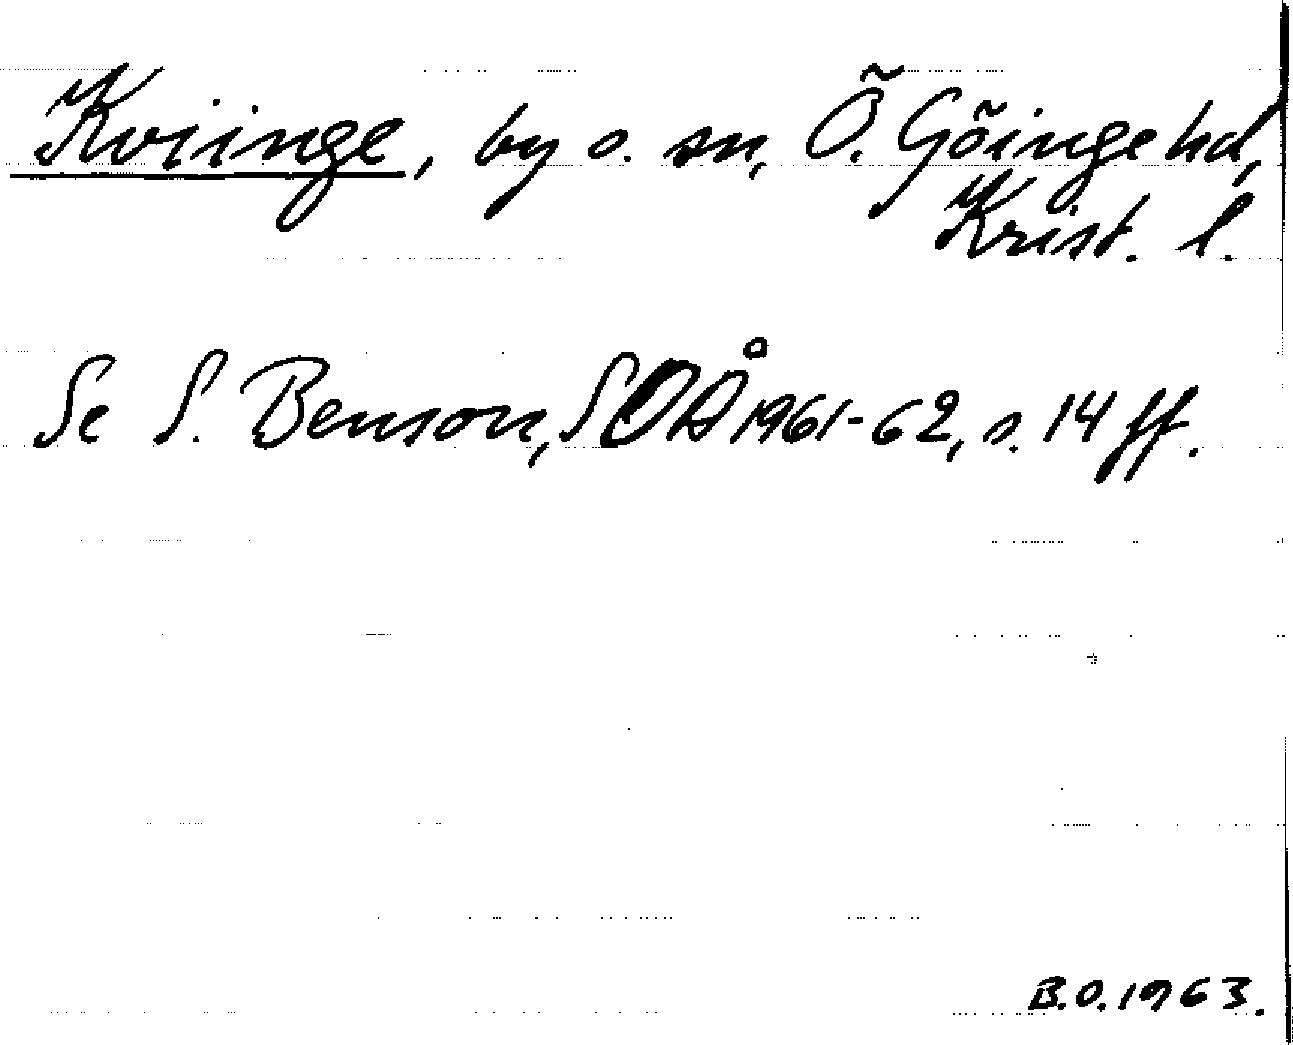 Kviinge, by o. sn, Ö. Göinge hd,
Krist. l.
Se S. Benson, SOÅ 1961-62, s. 14 ff.
B.O. 1963.